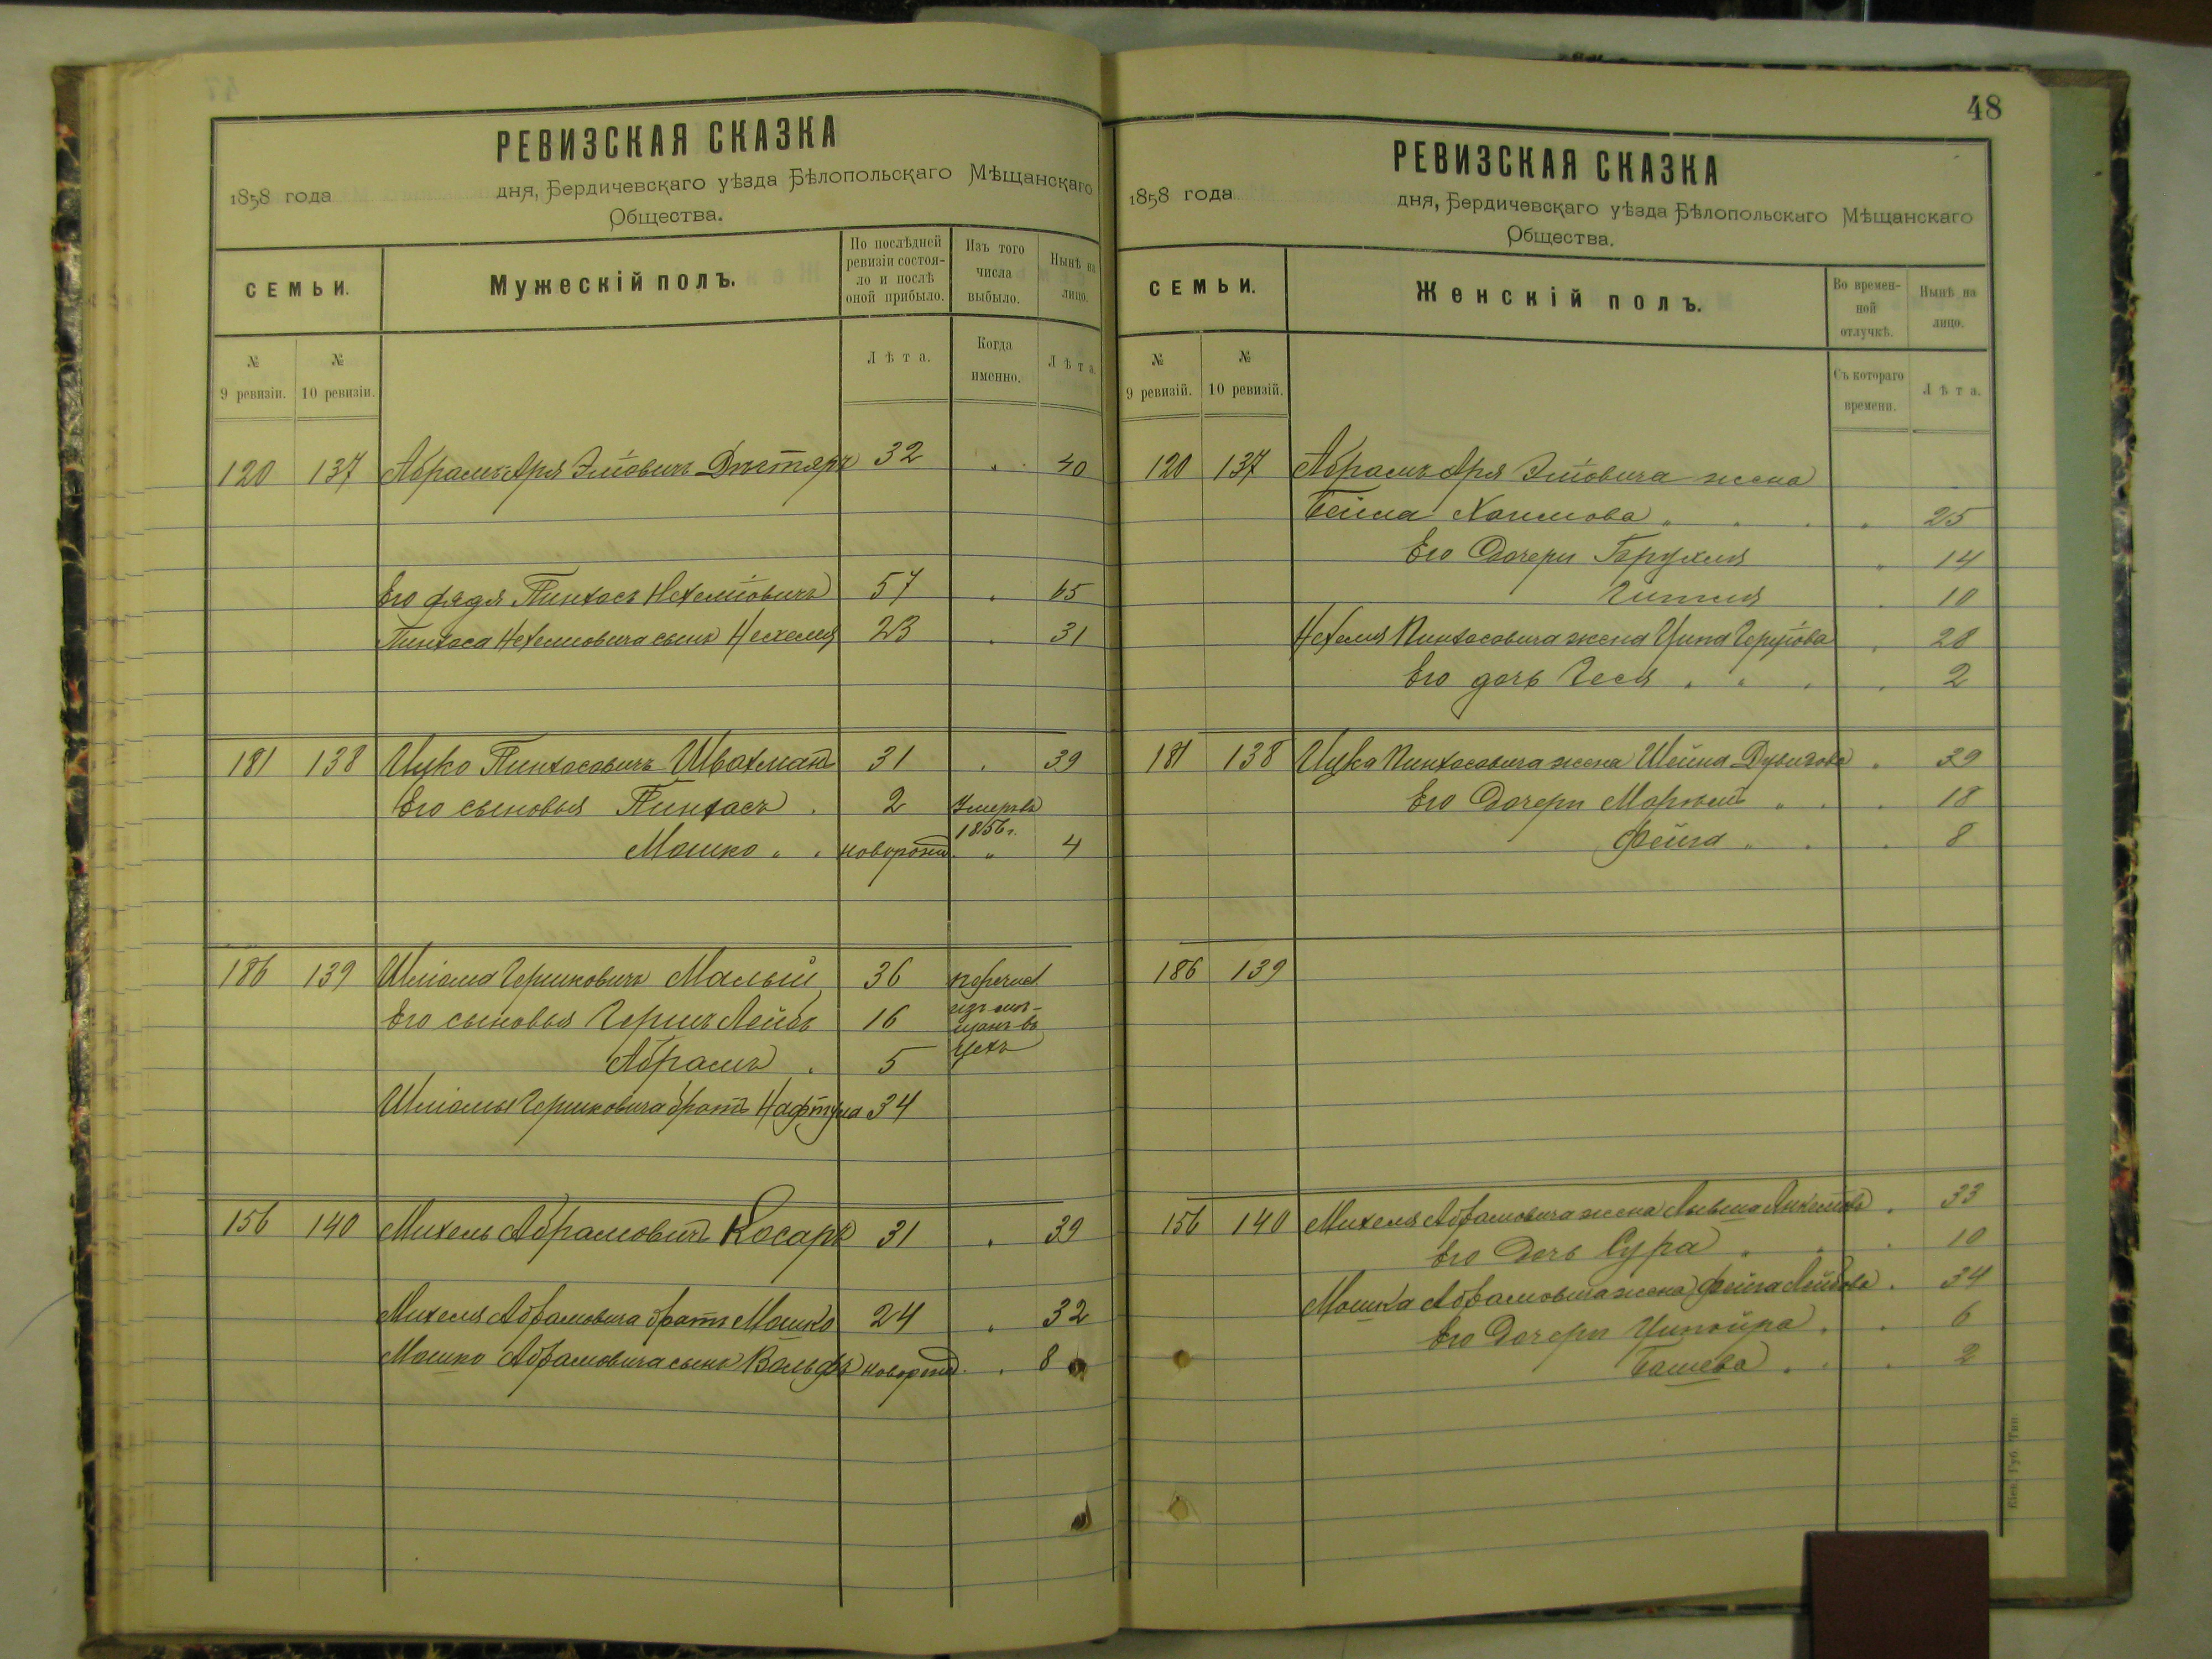 РЕВИЗСКАЯ СКАЗКА
1858 года дня, Бердичевскаго уѣзда Бѣлопольскаго Мѣщанскаго
Общества.
СЕМЬИ.
Мужескій полъ.
По послѣдней ревизіи состояло и послѣ оной прибыло.
Изъ того числа выбыло.
Нынѣ на лицо.
№ 9 ревизіи.
№ 10 ревизіи.
Лѣта.
Когда именно.
Лѣта.
120 137 Абрамъ Аря Эліовичъ 32 " 40
Его дядя Пинхасъ Нехеміовичъ 57 " 65
Пинхаса Нехеміовича сынъ Нехемія 23 " 31
181 138 Ицко Пинхасовичъ Швахманъ 31 " 39
Его сыновья Пинхасъ 2 Умеръ въ 1856 г.
Мошко " " новорожд. " 4
186 139 Шліома Гершковичъ Малый 36 перечисл
Его сыновья Гершъ Лейбъ 16 изъ мѣ-
щанъ въ
Абрамъ 5 цехъ
Шліомы Гершковича братъ Нафтула 34
156 140 Михель Абрамовичъ Косаръ 31 " 39
Михеля Абрамовича братъ Мошко 24 " 32
Мошко Абрамовича сынъ Вольфъ новорожд. " 8
48
РЕВИЗСКАЯ СКАЗКА
1858 года дня, Бердичевскаго уѣзда Бѣлопольскаго Мѣщанскаго
Общества.
СЕМЬИ.
Женскій полъ.
Во временной отлучкѣ.
Нынѣ на лицо.
№ 9 ревизій.
№ 10 ревизій.
Съ котораго времени.
Лѣта.
120 137 Абрамъ Аря Эліовича жена
Бейла Хаимова " " " " 25
Его Дочери " 14
Гитля " 10
Нехемія Пинхасовича жена Ципа " 28
Его дочь Геся " " " " 2
181 138 Ицка Пинхасовича жена Шейна " 39
Его Дочери " " " 18
Фейга " " " 8
186 139
156 140 Михеля Абрамовича жена " 33
Его Дочь Сура " " " 10
Мошка Абрамовича жена Фейга Лейбова " 34
Его Дочери Ципойра " " 6
Башева " " " 2
Кіев. Губ. Тип.